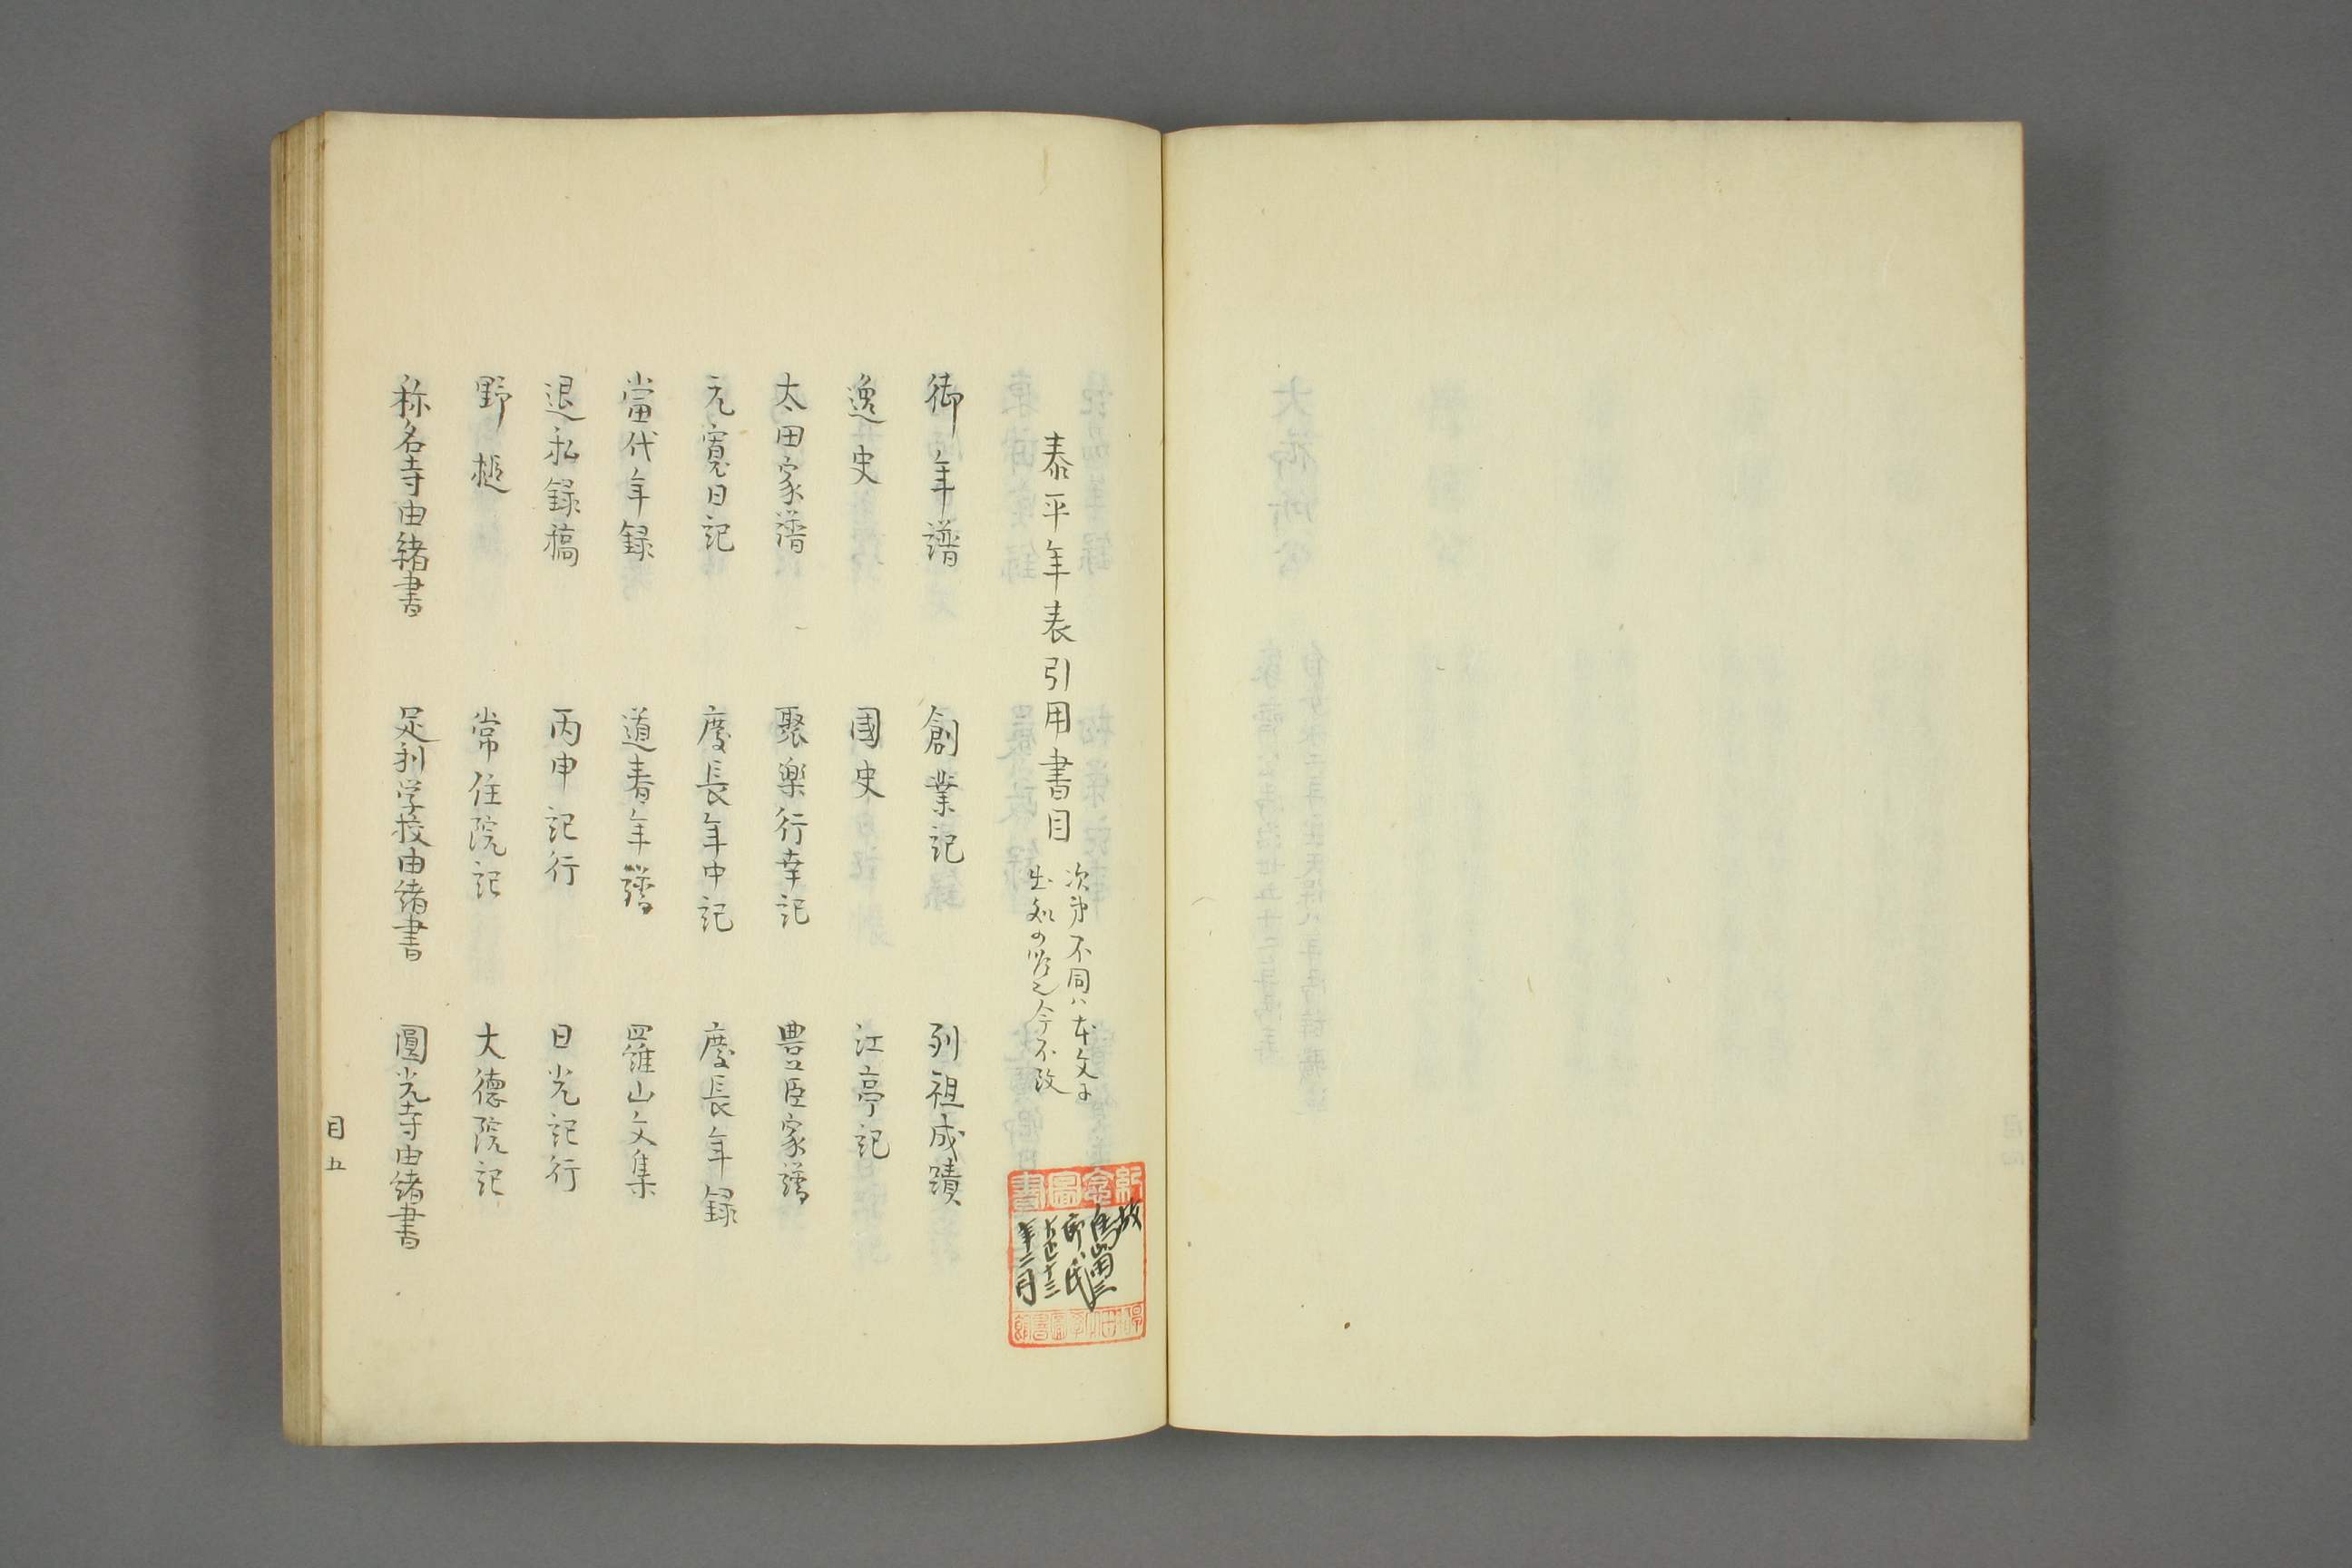 泰平年表引用書目
次第不同ハ本文ニ
出処の順也今不改
御年譜　創業記　列祖成蹟
逸史　國史　江亭記
太田家譜　聚楽行幸記　豊臣家譜
元寛日記　慶長年中記　慶長年録
當代年録　道春年譜　羅山文集
退私録稿　丙申記行　日光記行
野槌　常住院記　大德院記
称名寺由緒書　足利学校由緒書　圓光寺由緒書
目五
紀念圖書
故
郎氏
大正十三
年二月